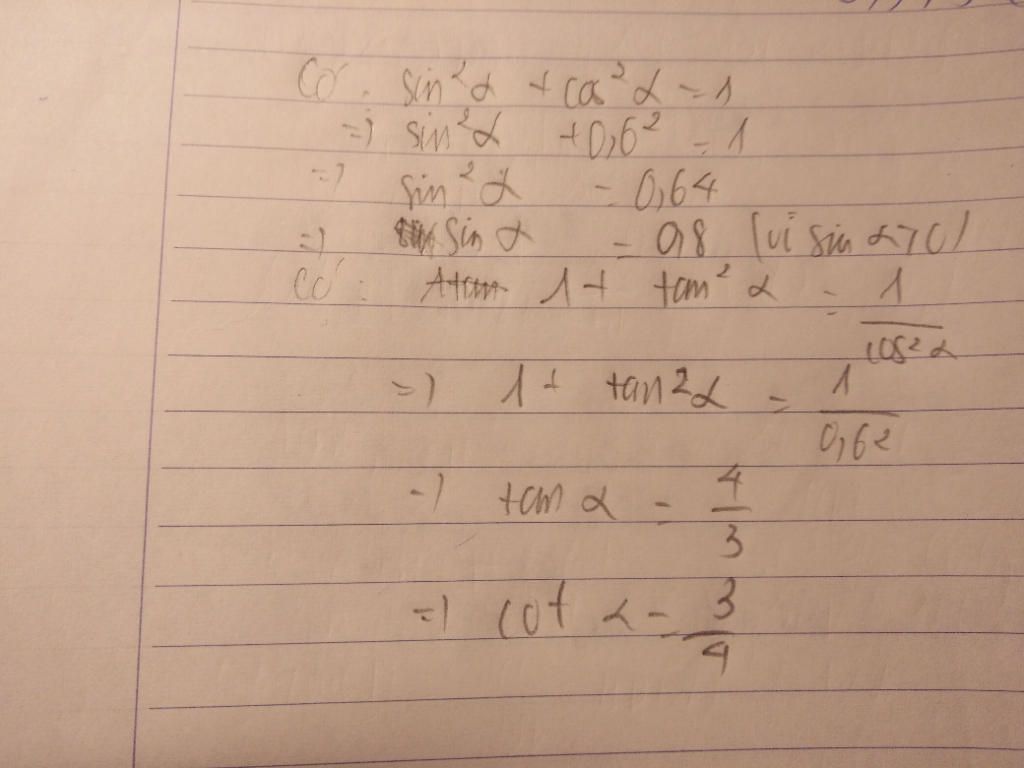 Có: sin²α + cos²α = 1
=) sin²α + 0,6² = 1
=) sin²α = 0,64
=) sin α = 0,8 (vì sin α > 0)
Có: 1 + tan² α = 1/cos²α
=) 1 + tan²α = 1/0,6²
=) tan α = 4/3
=) cot α = 3/4